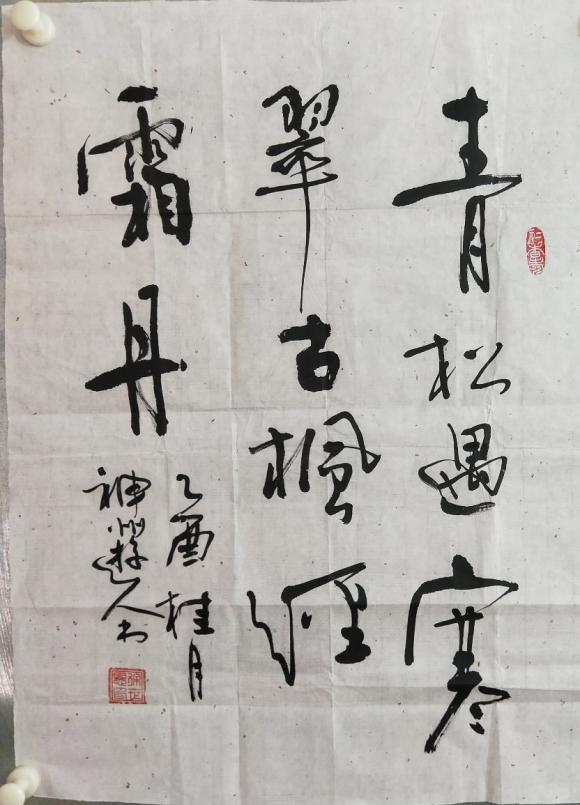 青松遇寒
翠古楓經
霜丹
乙酉桂月
神州遊人书